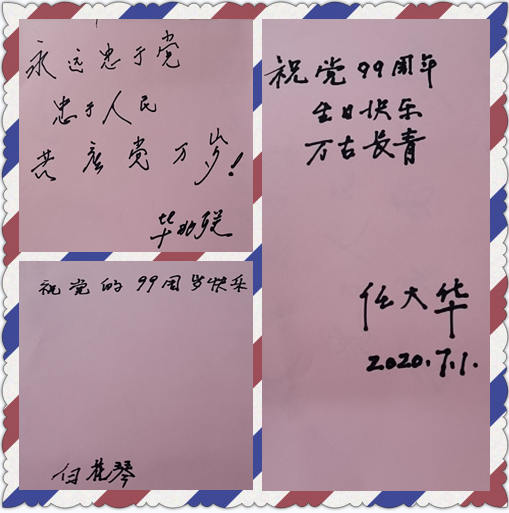 永远忠于党
忠于人民
共产党万岁!
祝党的99周岁快乐
祝党99周年
生日快乐
万古长青
任大华
2020.7.1.